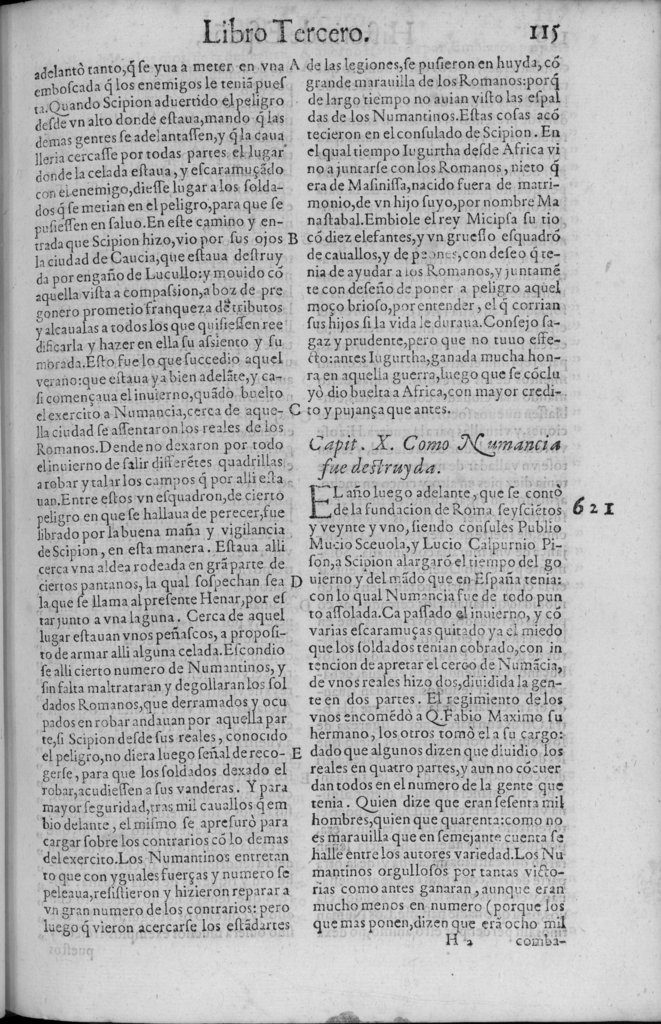 Libro Tercero. 115
adelantò tanto, q̃ se yua a meter en vna A
emboscada q̃ los enemigos le teniã pues
ta. Quando Scipion aduertido el peligro
desde vn alto donde estaua, mando q̃ las
demas gentes se adelantassen, y q̃ la caua
lleria cercasse por todas partes el lugar
donde la celada estaua, y escaramuçãdo
con el enemigo, diesse lugar a los solda-
dos q̃ se metian en el peligro, para que se
pusiessen en saluo. En este camino y en-
trada que Scipion hizo, vio por sus ojos B
la ciudad de Caucia, que estaua destruy
da por engaño de Lucullo: y mouido cõ
aquella vista a compassion, a boz de pre
gonero prometio franqueza de tributos
y alcaualas a todos los que quisiessen ree
dificarla y hazer en ella su assiento y su
morada. Esto fue lo que succedio aquel
verano: que estaua ya bien adelãte, y ca-
si començaua el inuierno, quãdo buelto
el exercito a Numancia, cerca de aque- C
lla ciudad se assentaron los reales de los
Romanos. Dende no dexaron por todo
el inuierno de salir differẽtes quadrillas
a robar y talar los campos q̃ por alli esta
uan. Entre estos vn esquadron, de cierto
peligro en que se hallaua de perecer, fue
librado por la buena maña y vigilancia
de Scipion, en esta manera. Estaua alli
cerca vna aldea rodeada en grã parte de
ciertos pantanos, la qual sospechan sea D
la que se llama al presente Henar, por es
tar junto a vna laguna. Cerca de aquel
lugar estauan vnos peñascos, a proposi-
to de armar alli alguna celada. Escondio
se alli cierto numero de Numantinos, y
sin falta maltrataran y degollaran los sol
dados Romanos, que derramados y ocu
pados en robar andauan por aquella par
te, si Scipion desde sus reales, conocido
el peligro, no diera luego señal de reco- E
gerse, para que los soldados dexado el
robar, acudiessen a sus vanderas. Y para
mayor seguridad, tras mil cauallos q̃ em
bio delante, el mismo se apresurò para
cargar sobre los contrarios cõ lo demas
del exercito. Los Numantinos entretan
to que con yguales fuerças y numero se
peleaua, resistieron y hizieron reparar a
vn gran numero de los contrarios: pero
luego q̃ vieron acercarse los estãdartes
de las legiones, se pusieron en huyda, cõ
grande marauilla de los Romanos: porq̃
de largo tiempo no auian visto las espal
das de los Numantinos. Estas cosas acõ
tecieron en el consulado de Scipion. En
el qual tiempo Iugurtha desde Africa vi
no a juntarse con los Romanos, nieto q̃
era de Masinissa, nacido fuera de matri-
monio, de vn hijo suyo, por nombre Ma
nastabal. Embiole el rey Micipsa su tio
cõ diez elefantes, y vn gruesso esquadrõ
de cauallos, y de peones, con deseo q̃ te-
nia de ayudar a los Romanos, y juntamẽ
te con deseño de poner a peligro aquel
moço brioso, por entender, el q̃ corrian
sus hijos si la vida le duraua. Consejo sa-
gaz y prudente, pero que no tuuo effe-
cto: antes Iugurtha, ganada mucha hon-
ra en aquella guerra, luego que se cõclu
yò dio buelta a Africa, con mayor credi-
to y pujança que antes.
Capit. X. Como Numancia
fue destruyda.
EL año luego adelante, que se contò
de la fundacion de Roma seysciẽtos 621
y veynte y vno, siendo consules Publio
Mucio Sceuola, y Lucio Calpurnio Pi-
son, a Scipion alargarõ el tiempo del go
uierno y del mãdo que en España tenia:
con lo qual Numancia fue de todo pun
to assolada. Ca passado el inuierno, y cõ
varias escaramuças quitado ya el miedo
que los soldados tenian cobrado, con in
tencion de apretar el cerco de Numãcia,
de vnos reales hizo dos, diuidida la gen-
te en dos partes. El regimiento de los
vnos encomẽdò a Q. Fabio Maximo su
hermano, los otros tomò el a su cargo:
dado que algunos dizen que diuidio los
reales en quatro partes, y aun no cõcuer
dan todos en el numero de la gente que
tenia. Quien dize que eran sesenta mil
hombres, quien que quarenta: como no
es marauilla que en semejante cuenta se
halle entre los autores variedad. Los Nu
mantinos orgullosos por tantas victo-
rias como antes ganaran, aunque eran
mucho menos en numero (porque los
que mas ponen, dizen que erã ocho mil
H 2 comba-